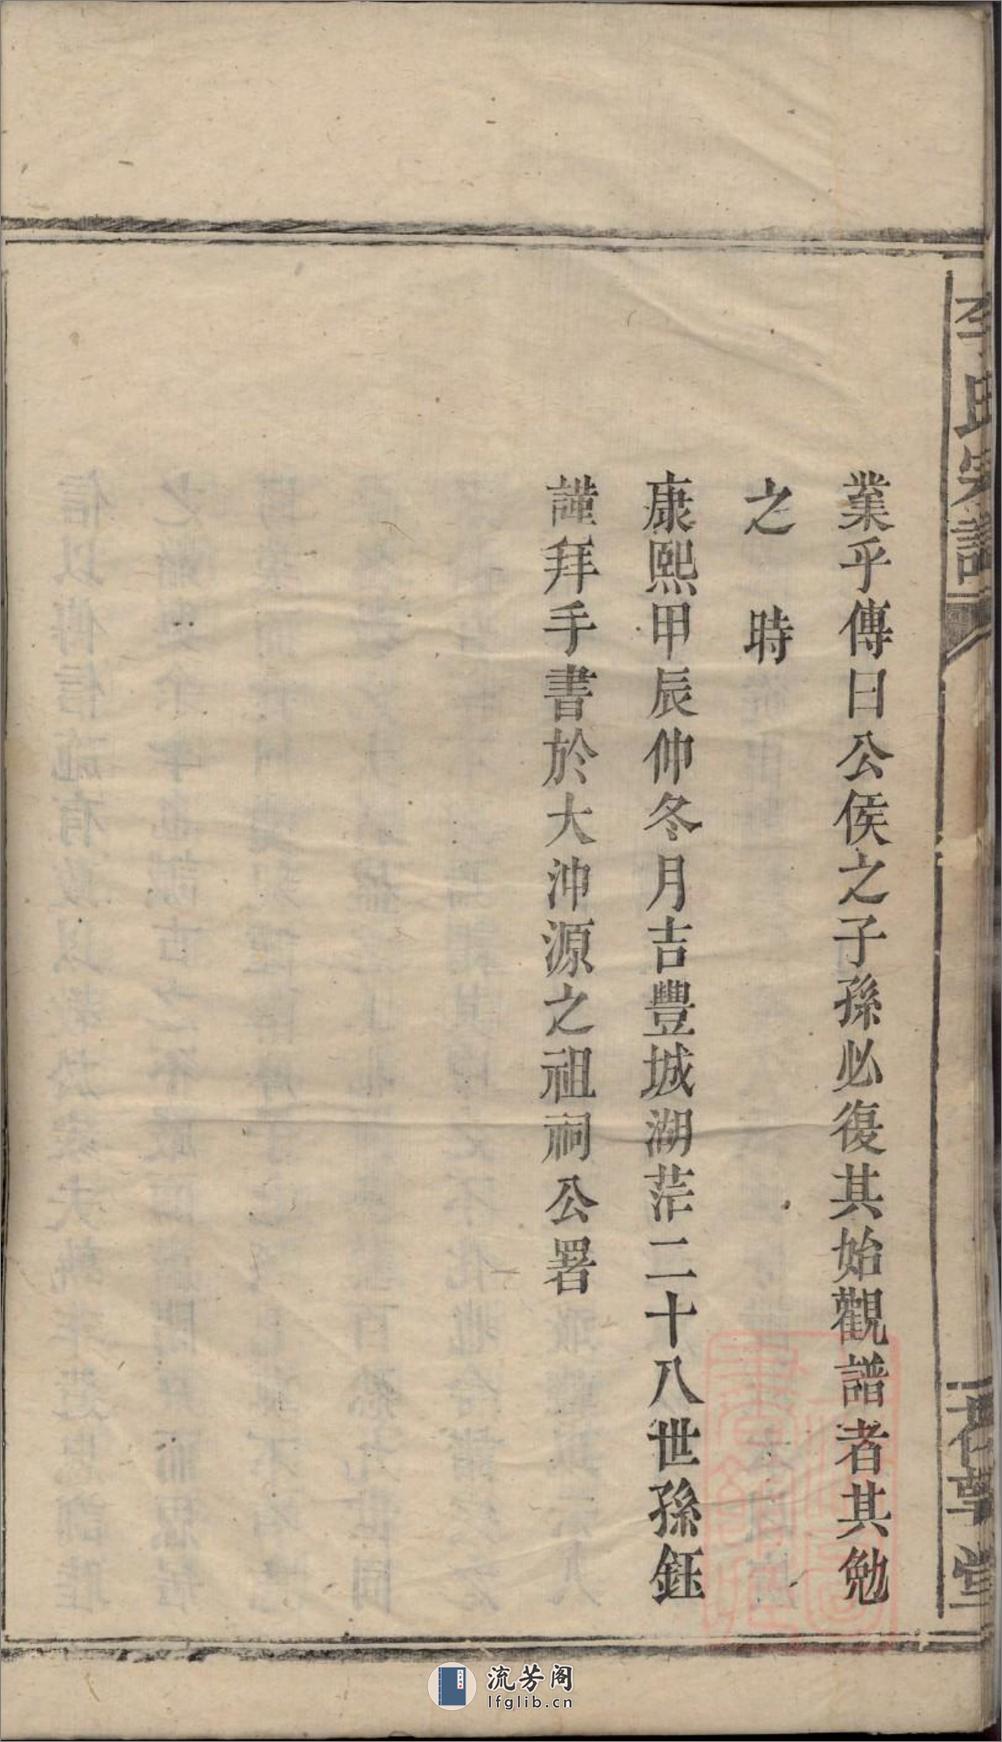 業乎傳曰公侯之子孫必復其始觀譜者其勉
之時
康熙甲辰仲冬月吉豐城湖茫二十八世孫鈺
謹拜手書於大沖源之祖祠公署
李氏宗譜
堂
流芳阁
lfglib.cn